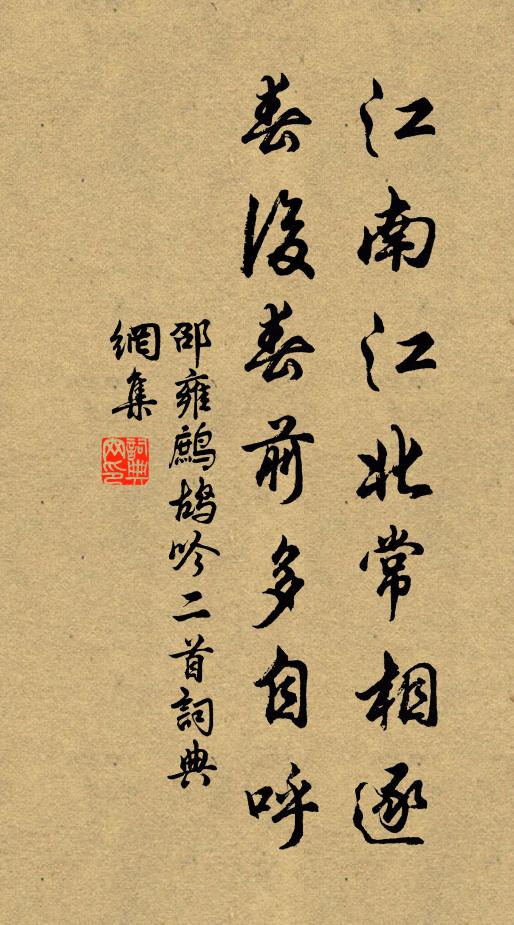 江南江北常相逐
春後春前多自呼
邵雍鷓鴣吟二首詞典
網集
詞典
网印